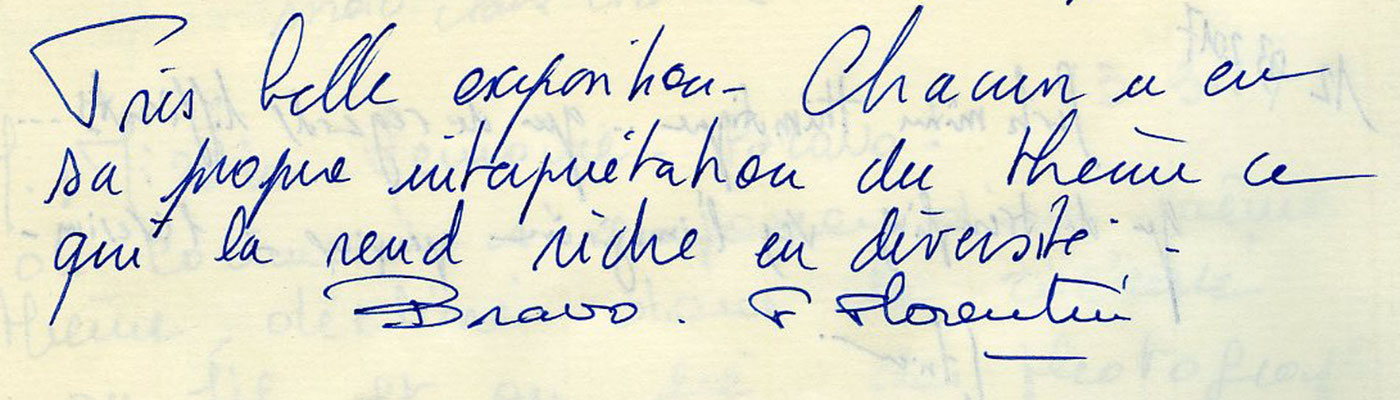 Très belle exposition - Chacun a eu
sa propre interprétation du thème ce
qui la rend riche en diversité -
Bravo. F Florentin